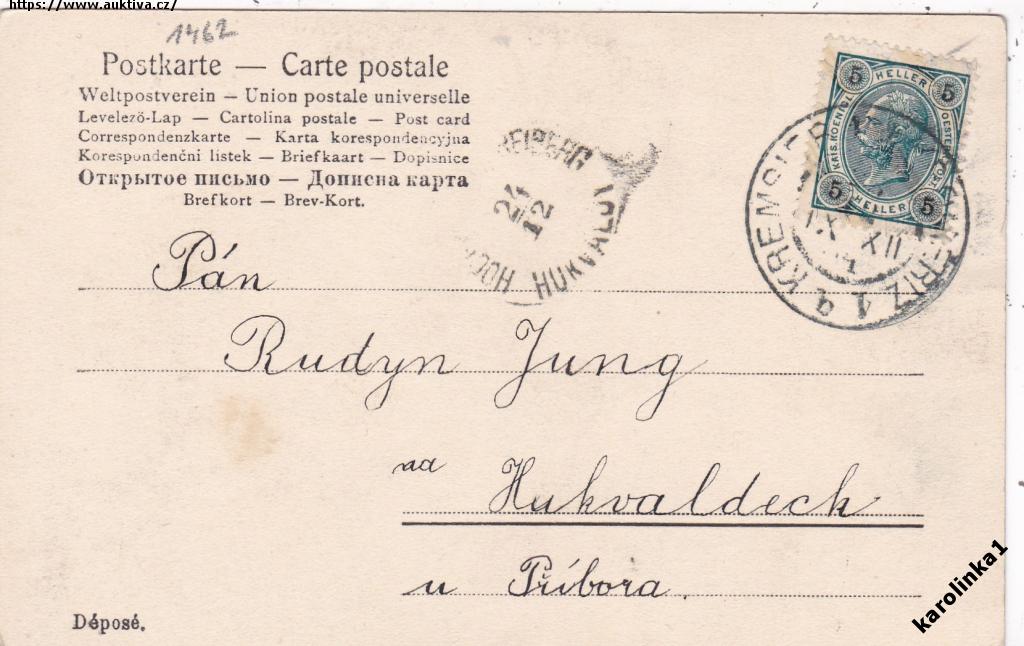 https://www.auktiva.cz/
1462
Postkarte — Carte postale
Weltpostverein — Union postale universelle
Levelezö-Lap — Cartolina postale — Post card
Correspondenzkarte — Karta korespondencyjna
Korespondenční listek — Briefkaart — Dopisnice
Открытое письмо — Дописна карта
Brefkort — Brev-Kort.
5 HELLER 5
KAIS. KOENIGL.
5 HELLER 5
KREMSIER
XII
1 a
HUKVALDY
24
12
Pán
Rudyn Jung
na Hukvaldeck
u Příbora.
Déposé.
karolinka1